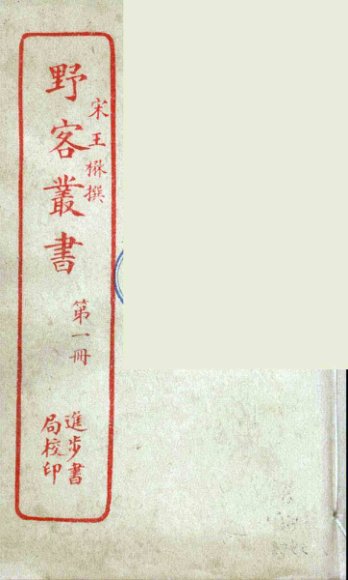 宋王楙撰
野客叢書
第一冊
進步書
局校印